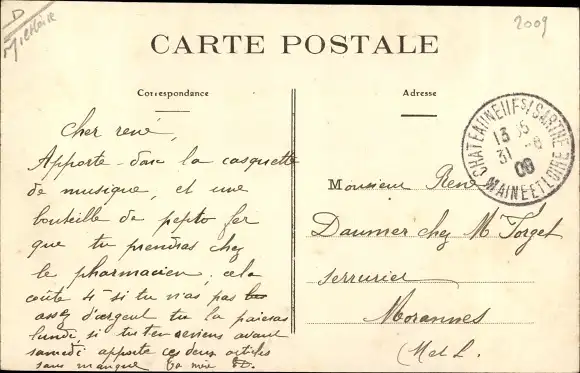 D
Mictoire
2009
CARTE POSTALE
Correspondance
Adresse
CHATEAUNEUF S/SARTHE
13 15
31 -8
06
MAINE ET LOIRE
Cher rené,
Apporte-donc la casquette
de musique, et une
bouteille de pepto fer
que tu prendras chez
le pharmacien, cela
coûte 4 si tu n'as pas
assez d'argent tu la paieras
lundi, si tu t'en reviens avant
samedi apporte ces deux articles
sans manque ta mère D.
Monsieur René
Daumer chez M Forget
serrurier
Morannes
(M et L.